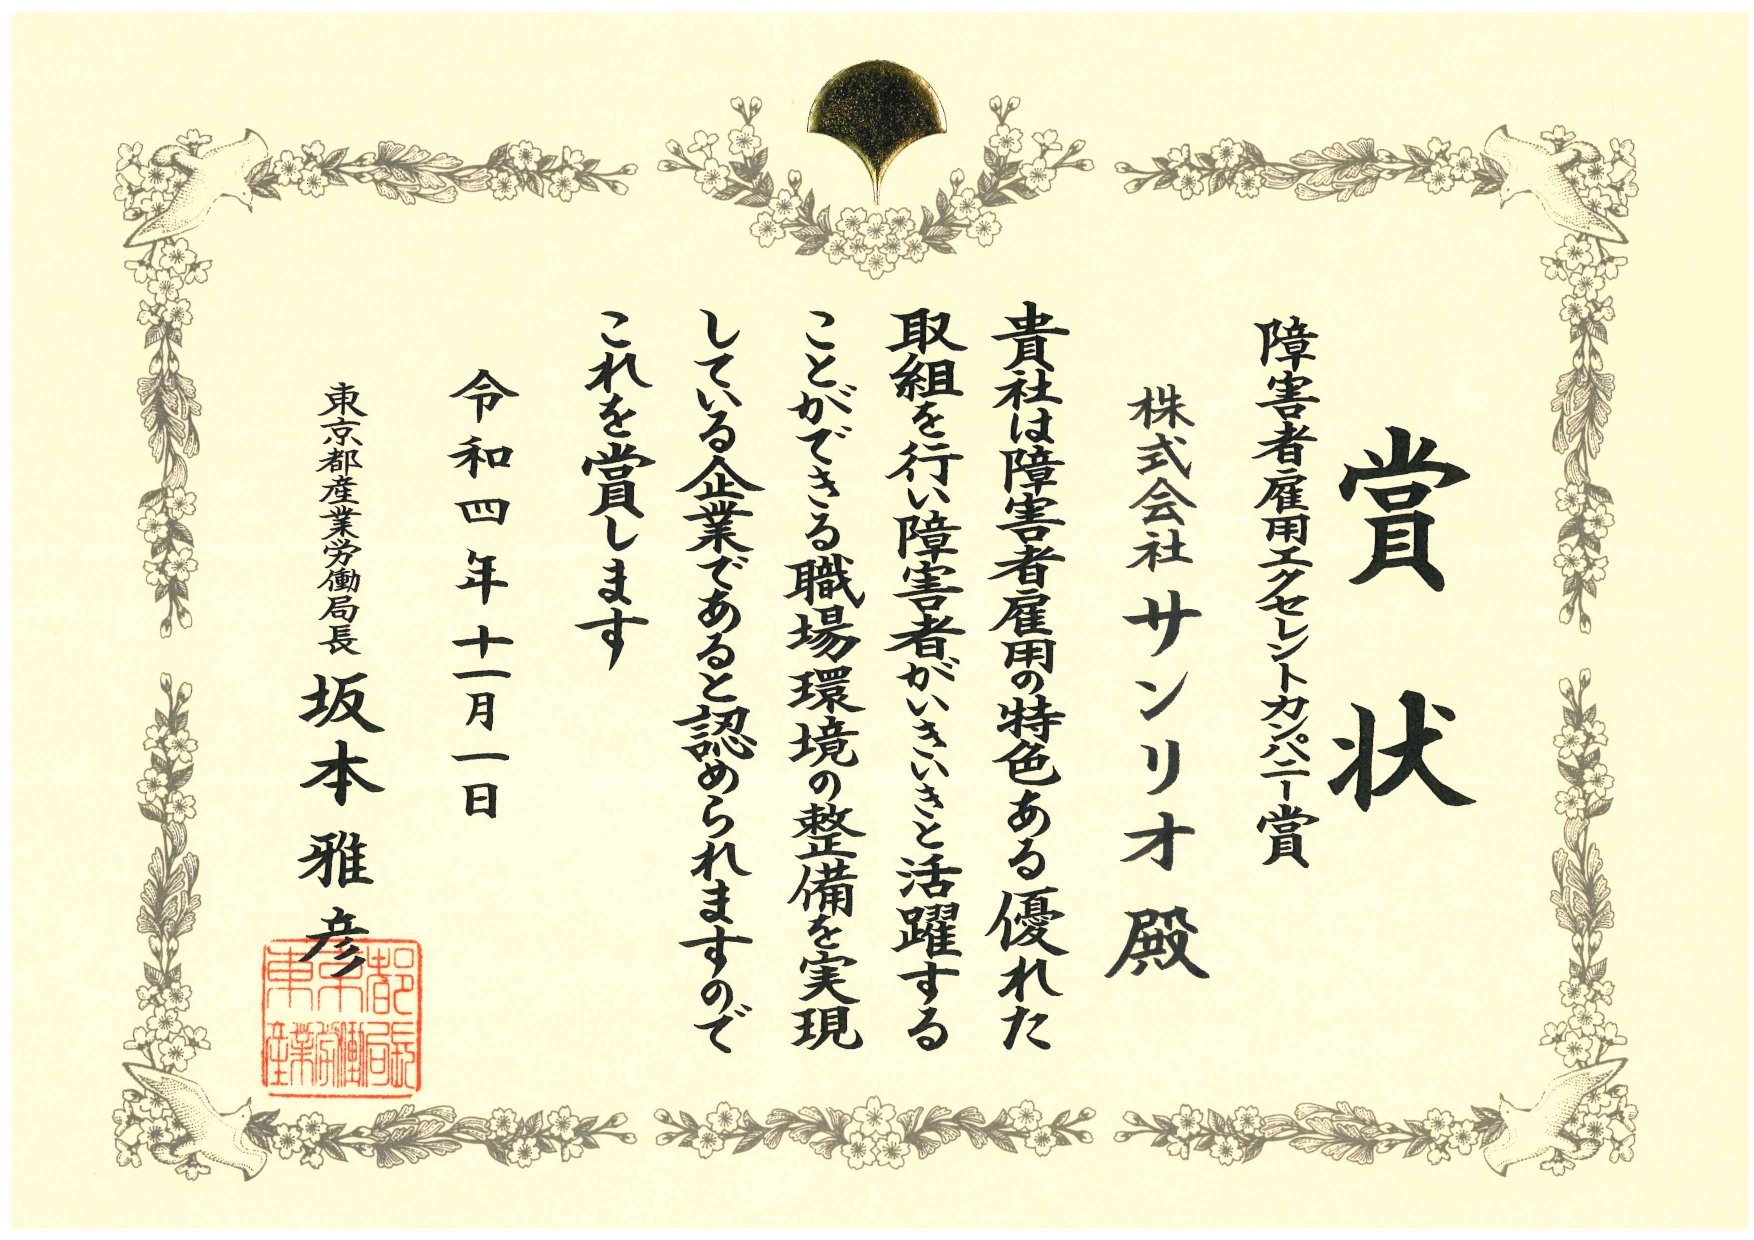 賞状
障害者雇用エクセレントカンパニー賞
株式会社サンリオ殿
貴社は障害者雇用の特色ある優れた
取組を行い障害者がいきいきと活躍する
ことができる職場環境の整備を実現
している企業であると認められますので
これを賞します
令和四年十一月一日
東京都産業労働局長 坂本雅彦
東京都
産業労働局長